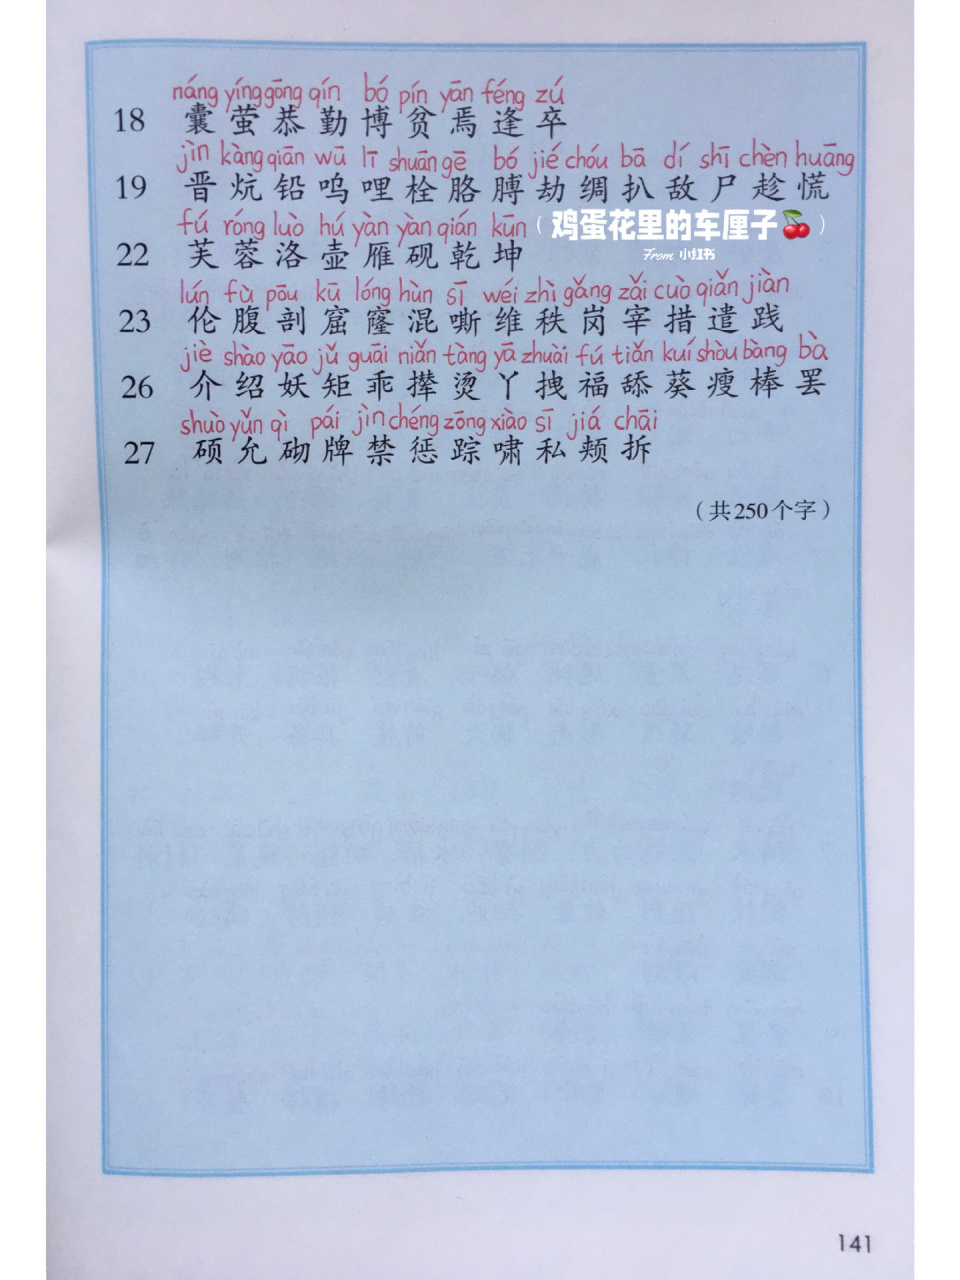 náng yíng gōng qín bó pín yān féng zú
18 囊 萤 恭 勤 博 贫 焉 逢 卒
jìn kàng qiān wū lī shuān gē bó jié chóu bā dí shī chèn huāng
19 晋 炕 铅 呜 哩 栓 胳 膊 劫 绸 扒 敌 尸 趁 慌
fú róng luò hú yàn yàn qián kūn
(鸡蛋花里的车厘子🍒)
From 小红书
22 芙 蓉 洛 壶 雁 砚 乾 坤
lún fù pōu kū lóng hùn sī wéi zhì gǎng zǎi cuò qiǎn jiàn
23 伦 腹 剖 窟 窿 混 嘶 维 秩 岗 宰 措 遣 践
jiè shào yāo jǔ guāi niǎn tàng yā zhuài fú tiǎn kuí shòu bàng bà
26 介 绍 妖 矩 乖 撵 烫 丫 拽 福 舔 葵 瘦 棒 罢
shuò yǔn qì pái jìn chéng zōng xiào sī jiá chāi
27 硕 允 砌 牌 禁 惩 踪 啸 私 颊 拆
（共250个字）
141